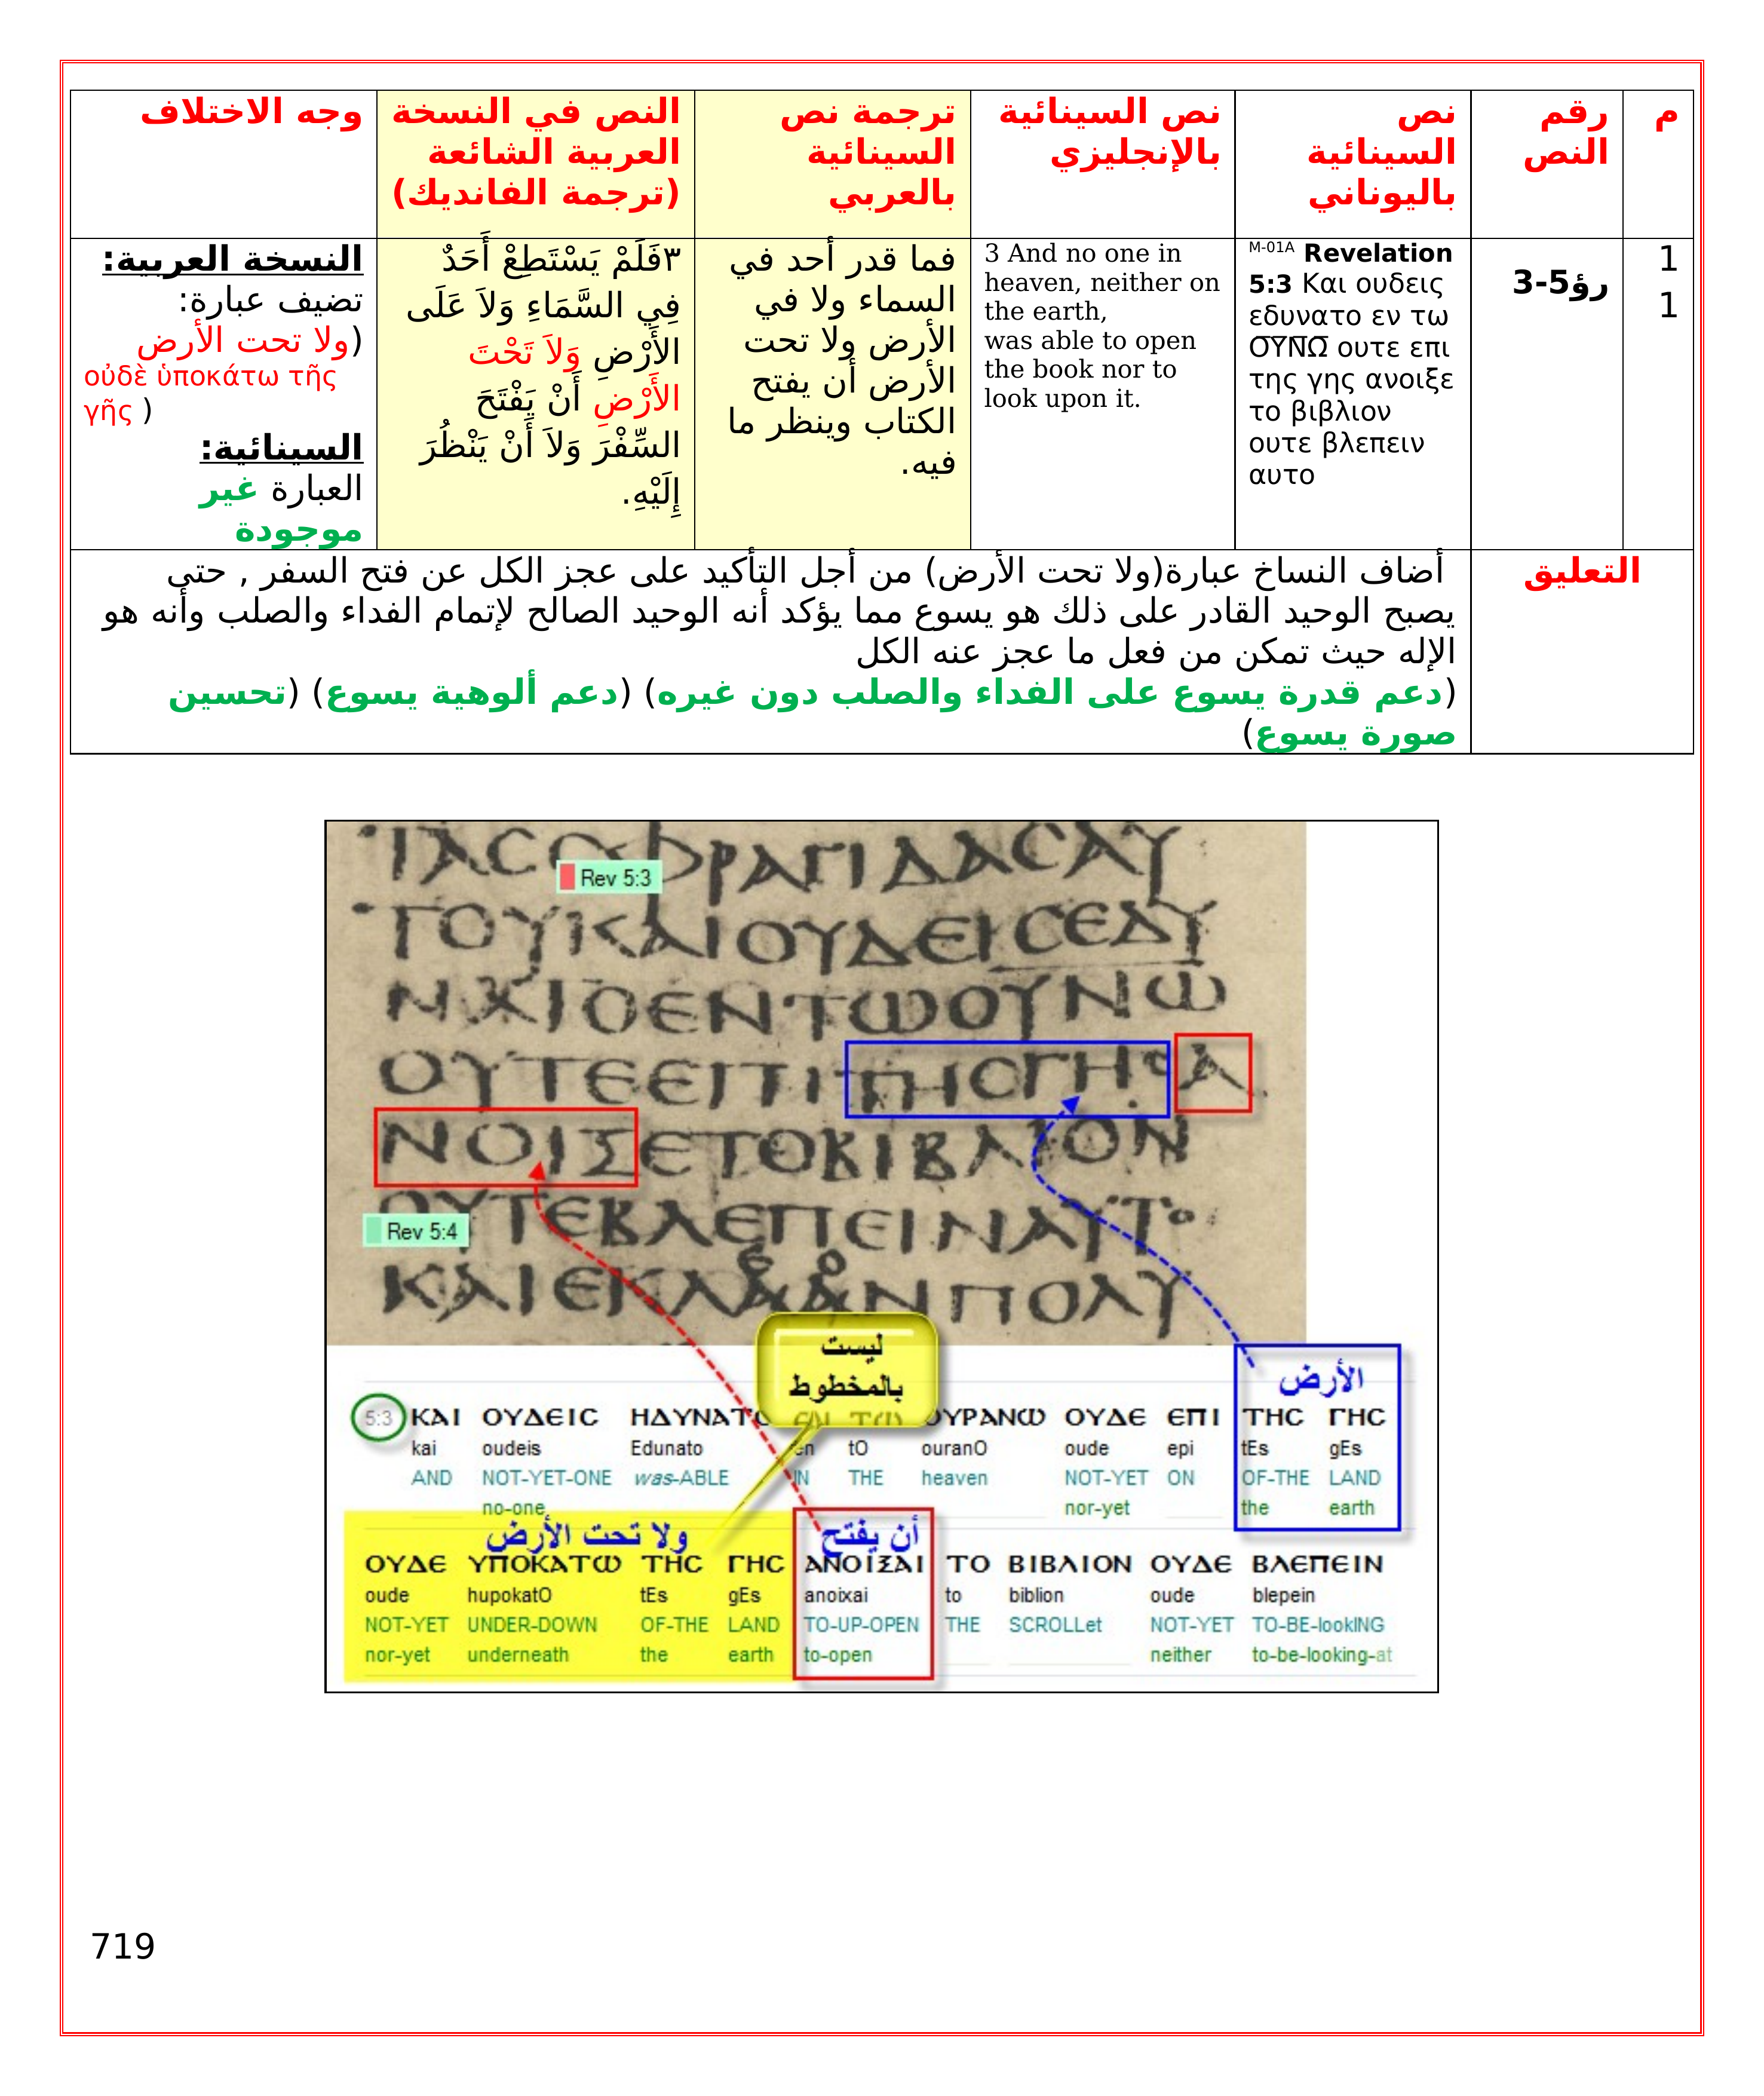 م
رقم
النص
نص
السينائية
باليوناني
نص السينائية
بالإنجليزي
ترجمة نص
السينائية
بالعربي
النص في النسخة
العربية الشائعة
(ترجمة الفانديك)
وجه الاختلاف
1
1
رؤ5-3
M-01A Revelation
5:3 Και ουδεις
εδυνατο εν τω
ΟΥΝΩ ουτε επι
της γης ανοιξε
το βιβλιον
ουτε βλεπειν
αυτο
3 And no one in
heaven, neither on
the earth,
was able to open
the book nor to
look upon it.
فما قدر أحد في
السماء ولا في
الأرض ولا تحت
الأرض أن يفتح
الكتاب وينظر ما
فيه.
٣فَلَمْ يَسْتَطِعْ أَحَدٌ
فِي السَّمَاءِ وَلاَ عَلَى
الأَرْضِ وَلاَ تَحْتَ
الأَرْضِ أَنْ يَفْتَحَ
السِّفْرَ وَلاَ أَنْ يَنْظُرَ
إِلَيْهِ.
النسخة العربية:
تضيف عبارة:
(ولا تحت الأرض
οὐδὲ ὑποκάτω τῆς
γῆς )
السينائية:
العبارة غير
موجودة
التعليق
أضاف النساخ عبارة(ولا تحت الأرض) من أجل التأكيد على عجز الكل عن فتح السفر , حتى
يصبح الوحيد القادر على ذلك هو يسوع مما يؤكد أنه الوحيد الصالح لإتمام الفداء والصلب وأنه هو
الإله حيث تمكن من فعل ما عجز عنه الكل
(دعم قدرة يسوع على الفداء والصلب دون غيره) (دعم ألوهية يسوع) (تحسين
صورة يسوع)
Rev 5:3
ΤΟΥΚΑΙΟΥΔΕΙCΕΔΥ
ΟΥΤΕΕΠΙΤΗCΓΗCΑ
ΝΟΙΞΕΤΟΒΙΒΛΙΟΝ
ΟΥΤΕΒΛΕΠΕΙΝΑΥΤΟ
Rev 5:4
ليست
بالمخطوط
الأرض
5:3 ΚΑΙ ΟΥΔΕΙC ΗΔΥΝΑΤΟ ΕΝ ΤΩ ΟΥΡΑΝΩ ΟΥΔΕ ΕΠΙ ΤΗC ΓΗC
kai oudeis Edunato en tO ouranO oude epi tEs gEs
AND NOT-YET-ONE was-ABLE IN THE heaven NOT-YET ON OF-THE LAND
no-one nor-yet the earth
ولا تحت الأرض أن يفتح
ΟΥΔΕ ΥΠΟΚΑΤΩ ΤΗC ΓΗC ΑΝΟΙΞΑΙ ΤΟ ΒΙΒΛΙΟΝ ΟΥΔΕ ΒΛΕΠΕΙΝ
oude hupokatO tEs gEs anoixai to biblion oude blepein
NOT-YET UNDER-DOWN OF-THE LAND TO-UP-OPEN THE SCROLLet NOT-YET TO-BE-lookING
nor-yet underneath the earth to-open neither to-be-looking-at
719